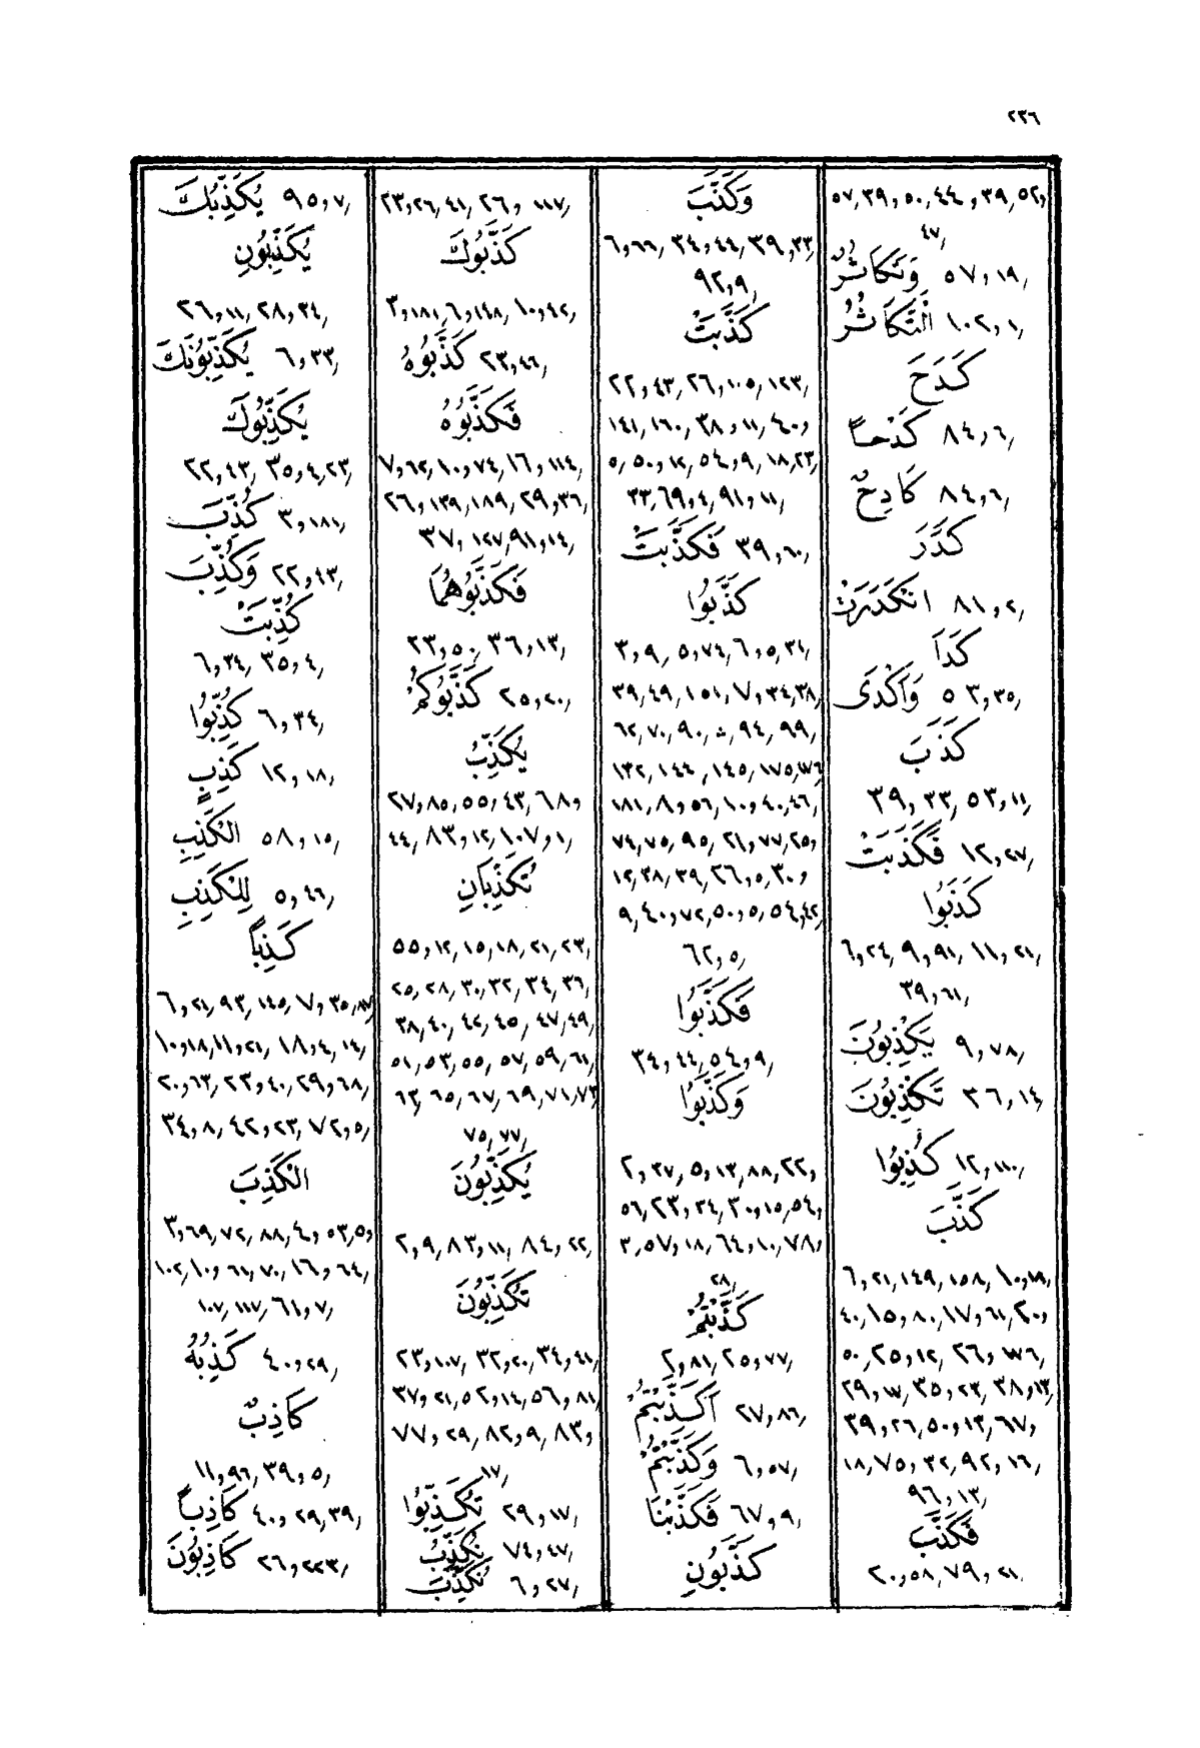 ٢٣٦
٥٧,٣٩,٥٠,٤٤,٣٩,٥٢,
٤٧,
وَتَكَاثُرٌ ٥٧,١٩,
التَّكَاثُرُ ١٠٢,١,
كَدَحَ
كَدْحاً ٨٤,٦,
كَادِحٌ ٨٤,٦,
كَدَّرَ
انْكَدَرَتْ ٨١,٢,
كَدَا
وَأَكْدَى ٥٣,٣٥,
كَذَبَ
٣٩,٣٣,٥٣,١١,
فَكَذَبَتْ ١٢,٢٧,
كَذَبُوا
٦,٢٤,٩,٩١,١١,٢١,
٣٩,٦١,
يَكْذِبُونَ ٩,٧٨,
تَكْذِبُونَ ٣٦,١٤,
كُذِبُوا ١٢,١١٠,
كَذَّبَ
٦,٢١,١٤٩,١٥٨,١٠,١٨,
٤٠,١٥,٨٠,١٧,٦١,٢٠,
٥٠,٢٥,١٢,٢٦,١٧٦,
٢٩,١٧,٣٥,٢٣,٣٨,١٣,
٣٩,٢٦,٥٠,١٣,٦٧,
١٨,٧٥,٣٢,٩٢,١٦,
٩٦,١٣,
فَكَذَّبَ
٢٠,٥٨,٧٩,٢١,
وَكَذَّبَ
٦,٦٦,٣٤,٤٤,٣٩,٣٣,
٩٢,٩,
كَذَّبَتْ
٢٢,٤٣,٢٦,١٠٥,١٢٣,
١٤١,١٦٠,٣٨,١١,٤٠,
٥,٥٠,١٢,٥٤,٩,١٨,٢٣,
٣٣,٦٩,٤,٩١,١١,
فَكَذَّبَتْ ٣٩,٦٠,
كَذَّبُوا
٣,٩,٥,٧٤,٦,٥,٣١,
٣٩,٤٩,١٥١,٧,٣٤,٣٨,
٦٢,٧٠,٩٠,٩٤,٩٩,
١٣٢,١٤٤,١٤٥,١٧٥,١٧٦,
١٨١,٨,٥٦,١٠,٤٠,٤٦,
٧٤,٧٥,٩٥,٢١,٧٧,٢٥,
١٢,٣٨,٣٩,٢٦,٥,٣٠,
٩,٤٠,٧٢,٥٠,٥,٥٤,٤٢,
٦٢,٥,
فَكَذَّبُوا
٣٤,٤٤,٥٤,٩,
وَكَذَّبُوا
٢,٣٧,٥,١٣,٨٨,٢٢,
٥٦,٢٣,٢٤,٣٠,١٥,٥٤,
٣,٥٧,١٨,٦٤,١٠,٧٨,
٢٨,
كَذَّبْتُمْ
٢,٨١,٢٥,٧٧,
أَكَذَّبْتُمْ ٢٧,٨٦,
وَكَذَّبْتُمْ ٦,٥٧,
فَكَذَّبْنَا ٦٧,٩,
كَذَّبُونِ
٢٣,٢٦,٤١,٢٦,١١٧,
كَذَّبُوكَ
٣,١٨١,٦,١٤٨,١٠,٤٢,
كَذَّبُوهُ ٢٣,٤٦,
فَكَذَّبُوهُ
٧,٦٢,١٠,٧٤,١٦,١١٤,
٢٦,١٣٩,١٨٩,٢٩,٣٦,
٣٧,١٢٧,٩١,١٤,
فَكَذَّبُوهُمَا
٢٣,٥٠,٣٦,١٣,
كَذَّبُوكُمْ ٢٥,٢٠,
يُكَذِّبُ
٢٧,٨٥,٥٥,٤٣,٦٨,
٤٤,٨٣,١٢,١٠٧,١,
تُكَذِّبَانِ
٥٥,١٢,١٥,١٨,٢١,٢٣,
٢٥,٢٨,٣٠,٣٢,٣٤,٣٦,
٣٨,٤٠,٤٢,٤٥,٤٧,٤٩,
٥١,٥٣,٥٥,٥٧,٥٩,٦١,
٦٣,٦٥,٦٧,٦٩,٧١,٧٣,
٧٥,٧٧,
يُكَذِّبُونَ
٢,٩,٨٣,١١,٨٤,٢٢,
تُكَذِّبُونَ
٢٣,١٠٧,٣٢,٢٠,٣٤,٤١,
٣٧,٢١,٥٢,١٤,٥٦,٨١,
٧٧,٢٩,٨٢,٩,٨٣,
١٧,
تُكَذِّبُوا ٢٩,١٧,
نُكَذِّبُ ٧٤,٤٧,
نُكَذِّبَ ٦,٢٧,
يُكَذِّبُكَ ٩٥,٧,
يُكَذِّبُونِ
٢٦,١١,٢٨,٣٤,
يُكَذِّبُونَكَ ٦,٣٣,
يُكَذِّبُوكَ
٢٢,٤٣,٣٥,٤,٢٣,
كُذِّبَ ٣,١٨١,
وَكُذِّبَ ٢٢,٤٣,
كُذِّبَتْ
٦,٣٤,٣٥,٤,
كُذِّبُوا ٦,٣٤,
كَذِبٍ ١٢,١٨,
الْكَذِبِ ٥٨,١٥,
لِلْكَذِبِ ٥,٤٦,
كَذِباً
٦,٢١,٩٣,١٤٥,٧,٣٥,٨٧,
١٠,١٨,١١,٢١,١٨,٤,١٤,
٢٠,٦٣,٢٣,٤٠,٢٩,٦٨,
٣٤,٨,٤٢,٢٣,٧٢,٥,
الْكَذِبَ
٣,٦٩,٧٢,٨٨,٤,٥٣,٥,
١٠٢,١٠,٦١,٧٠,١٦,٦٤,
١٠٧,١١٧,٦١,٧,
كَذِبُهُ ٤٠,٢٩,
كَاذِبٌ
١١,٩٦,٣٩,٥,
كَاذِباً ٤٠,٢٩,٣٩,
كَاذِبُونَ ٢٦,٢٢٣,